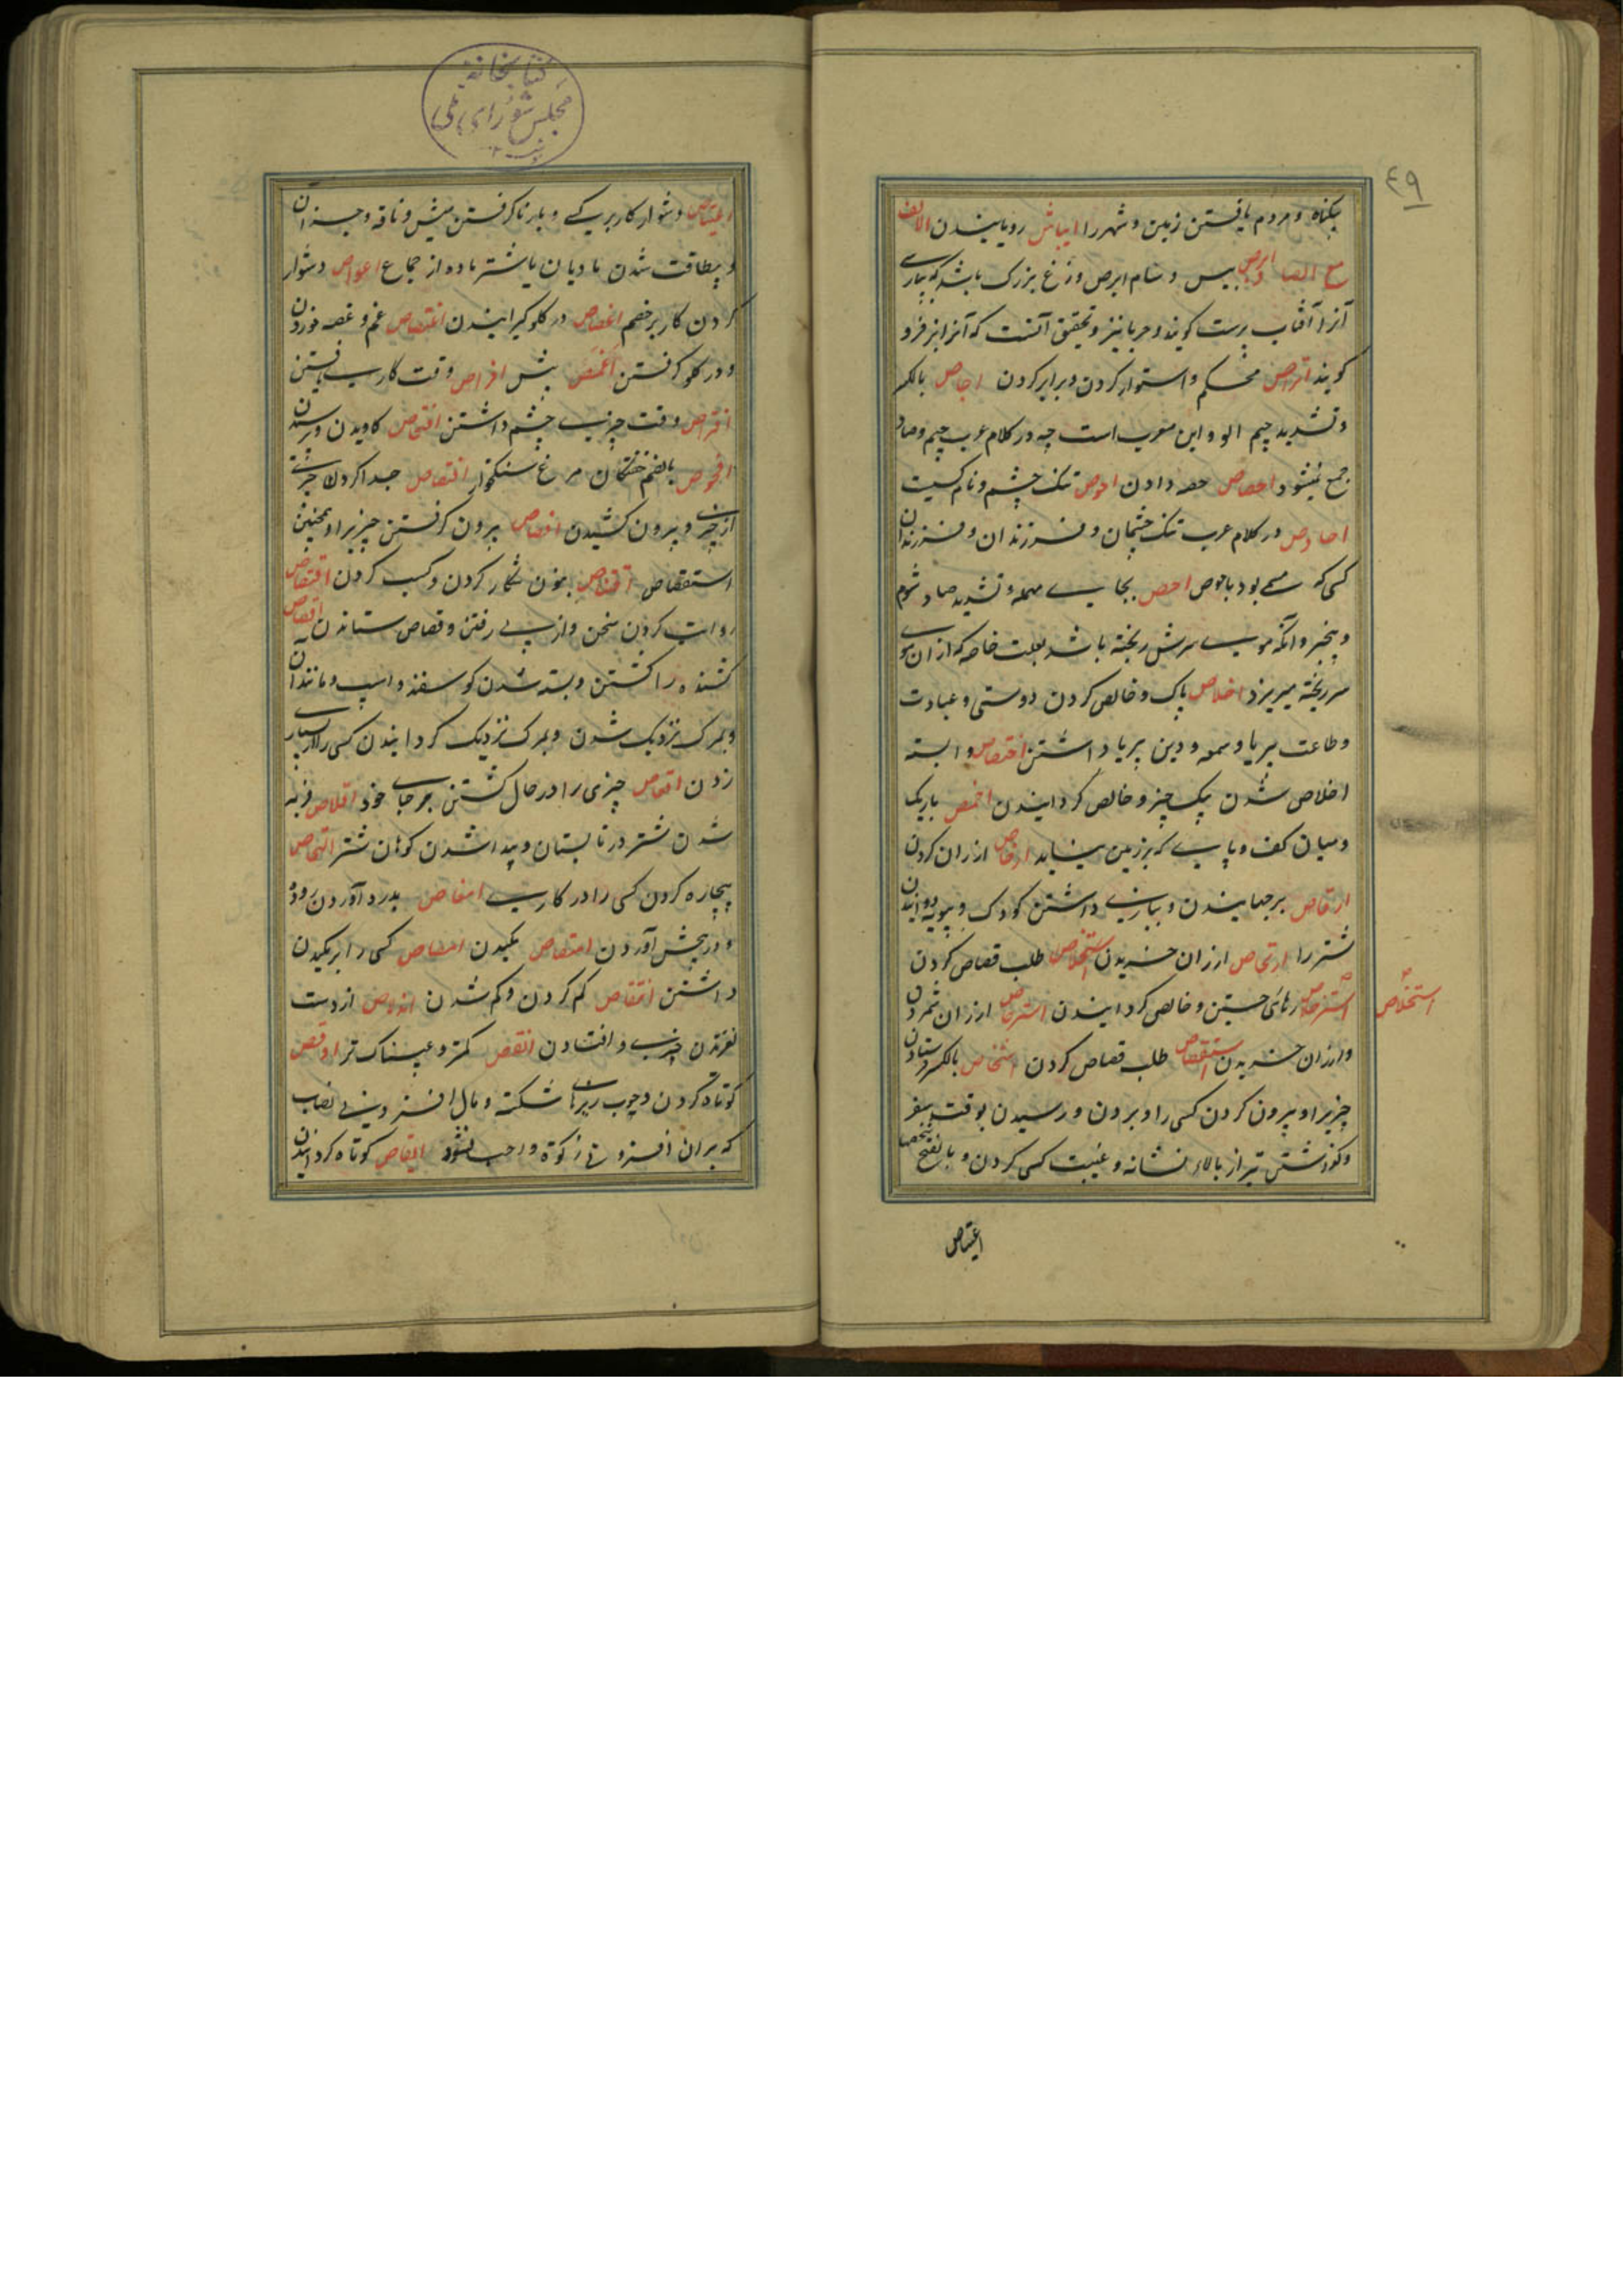 ٤٩
بیکناه و مردم یافتن زمین و شهر را ایباش رویانیدن الالف
مع الصاد ابرص پیس و سام ابرص وزغ بزرک باشد که بپارسی
آنرا آفتاب پرست کویند و حربا نیز و تحقیق آنست که آنرا نیز
کویند اتراص محکم و استوار کردن و برابر کردن اجاص بالکسر
و تشدید جیم الو و این معرب است چه در کلام عرب جیم و صاد
جمع نمیشود احصاص حصه دادن احوص تنک چشم و نام کسیت
احاوص در کلام عرب تنک چشمان و فرزندان و فرزندزادان
کسی که مسمی بود باحوص احص بحای مهمله و تشدید صاد شوم
و بیخبر و آنکه موی سرش ریخته باشد بعلت خاصه که از ان موی
سر ریخته میریزد اخلاص پاک و خالص کردن دوستی و عبادت
و طاعت بیریا و سمعه و دین بیریا داشتن اختصاص وابسته
اخلاص شدن بیک چیز و خالص کردانیدن اخمص باریک
و میان کف و پای که بر زمین نیاید ارخاص ارزان کردن
ارقاص برجهانیدن و ببازی داشتن کودک و بپویه دوانیدن
شتر را ارتخاص ارزان خریدن استخلاص طلب قصاص کردن
استخلاص
رهائی جستن و خالص کردانیدن استرخاص ارزان شمردن
و ارزان خریدن استقصاص طلب قصاص کردن اشخاص بالکسر فرستادن
چیزیرا و بیرون کردن کسی را و برون و رسیدن بوقت سفر
و کذاشتن تیر از بالاء نشانه و غیبت کسی کردن و بالفتح شخصها
اعتیاص
کتابخانه
مجلس شورای ملی
اعتیاص دشوار کار بر کسی و بار ناکرفتن میش و ناقه و جز آن
و بیطاقت شدن مادیان یا شتر ماده از جماع اعواص دشوار
کردن کار بر خصم اغصاص در کلو کیرانیدن اغتصاص غم و غصه خوردن
و در کلو کرفتن اغمص افراص وقت کار یافتن
افتراص وقت چیزی چشم داشتن افتحاص کاویدن و پرسیدن
افحوص بالضم خفتکان مرغ سنکخوار افتصاص جدا کردن چیزی
از چیزی و بیرون کشیدن افصاص بیرون کرفتن چیزیرا و همچنین
استقصاص اقتناص بنون شکار کردن و کسب کردن اقتصاص
روایت کردن سخن و از پی رفتن و قصاص ستاندن اقصاص
کشنده را کشتن و بسته شدن کوسفند و اسپ و مانند آن
و بمرک نزدیک شدن و بمرک نزدیک کردانیدن کسی را از بسیاری
زدن اقعاص چیزی را در حال کشتن بر جای خود اقلاص فربه
شدن شتر در تابستان و پیدا شدن کوهان شتر التحاص
بیچاره کردن کسی را در کاری امغاص بدرد آوردن روده
و در پیچش آوردن امتصاص مکیدن امصاص کسی را بر مکیدن
داشتن انتقاص کم کردن و کم شدن اندلاص از دست
لغزیدن چیزی و افتادن انقص کمتر و عیبناک تر اوقص
کوتاه کردن و چوب ریزهای شکسته و مال افزونی نصاب
که بر ان افزونی زکوة واجب نشود ایقاص کوتاه کردانیدن